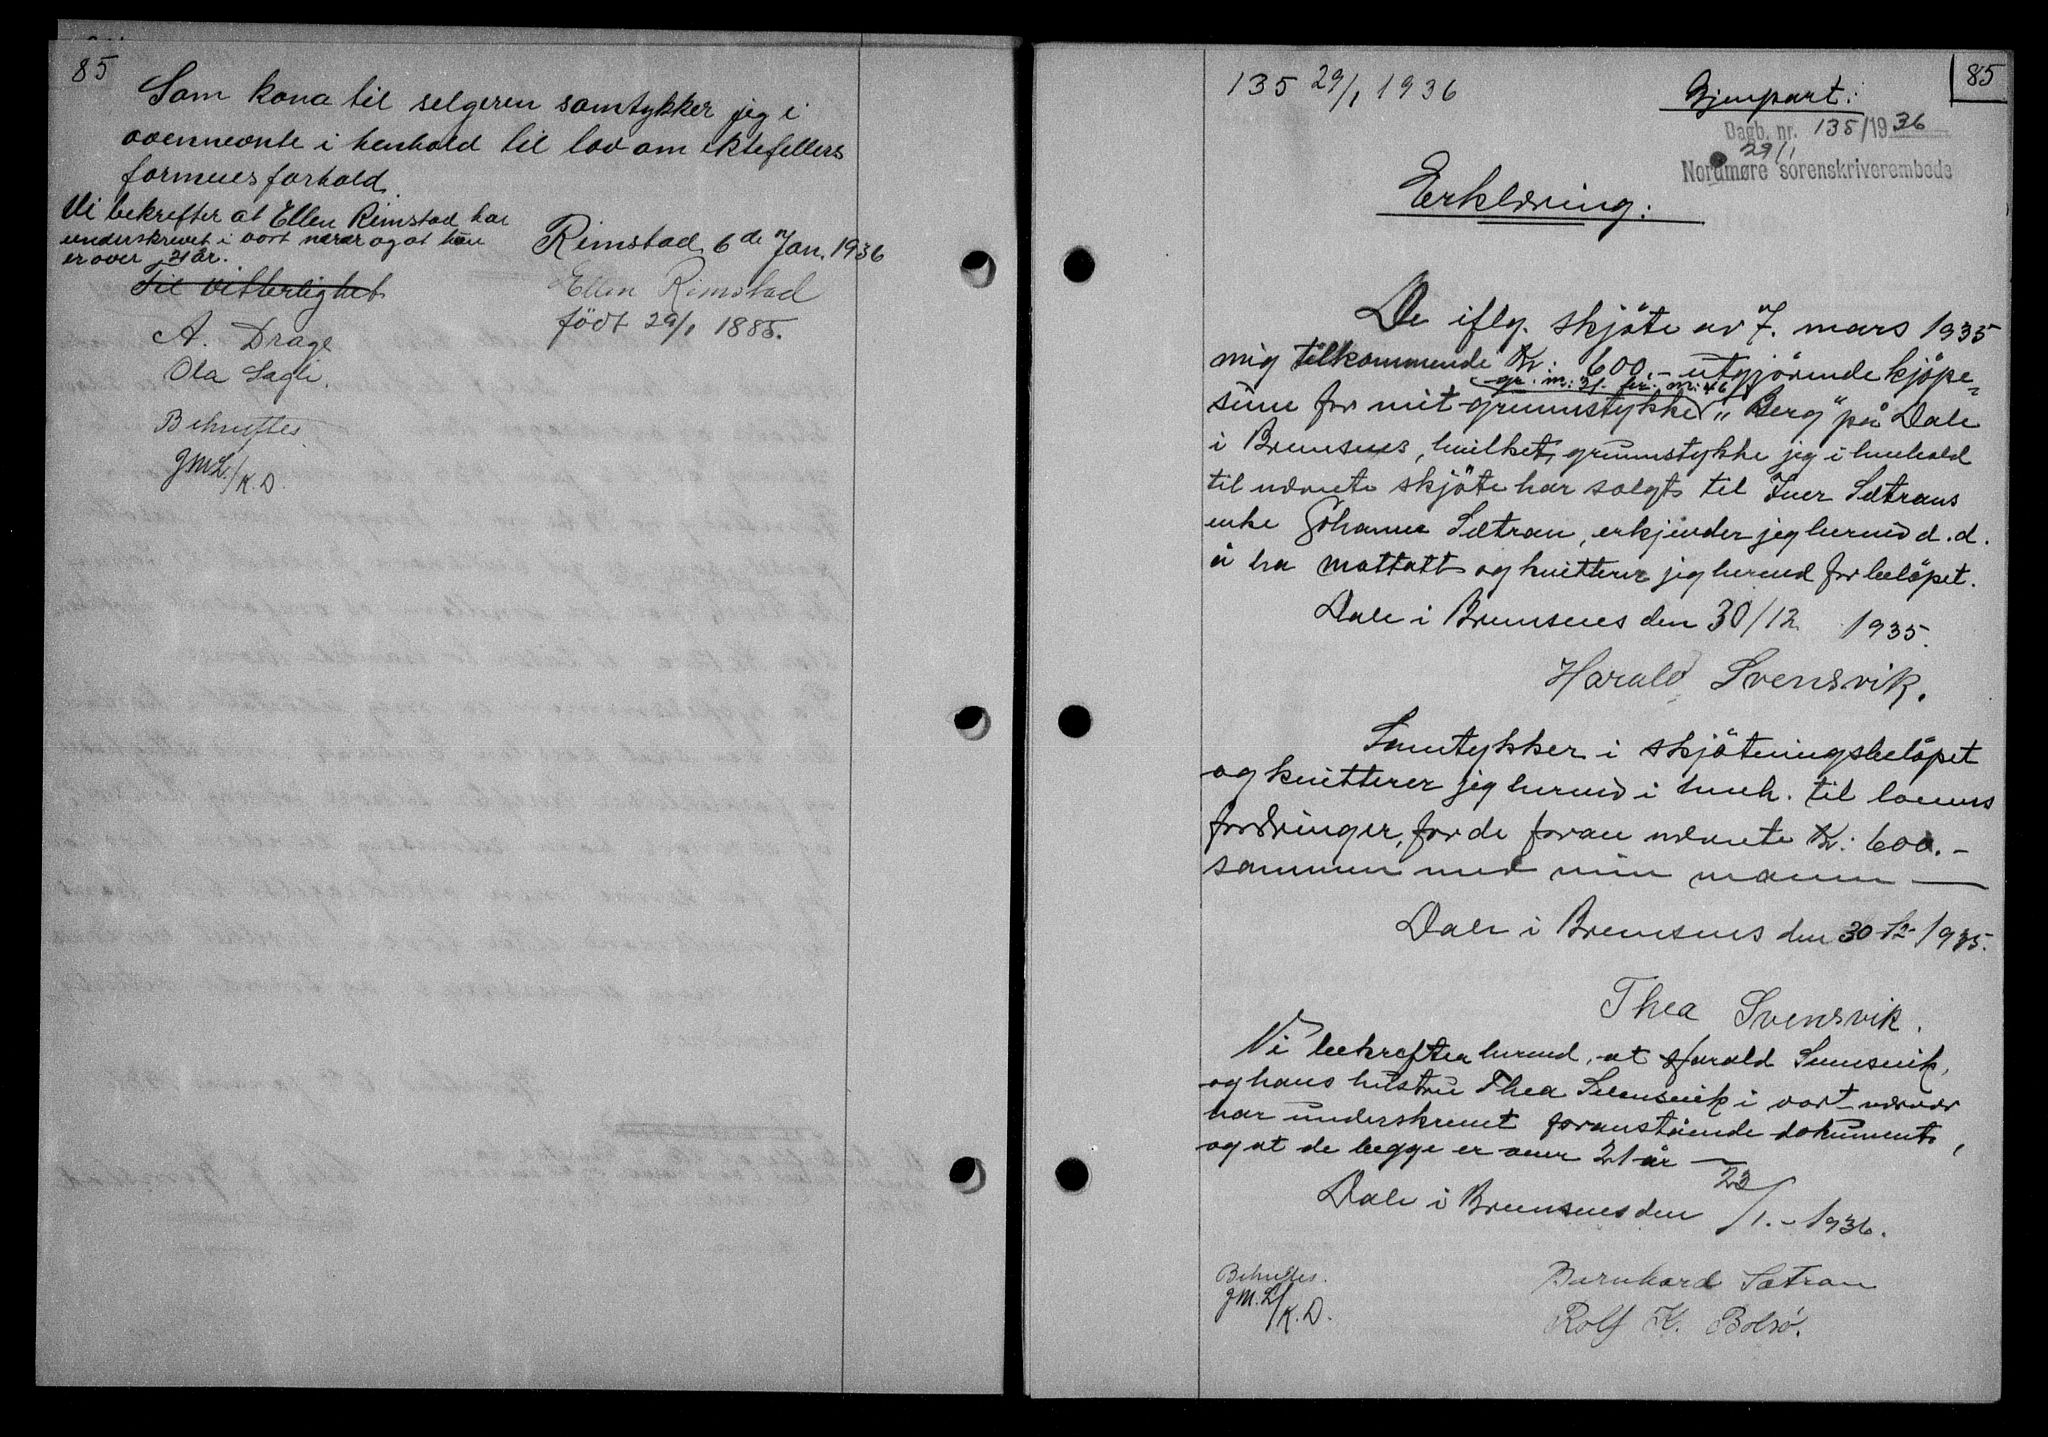 85
Som kona til selgeren samtykker jeg i
ovennevnte i henhold til lov om ektefellers
formuesforhold.
Vi bekrefter at Ellen Rimstad har
underskrevet i vort nærvær og at hun
er over 21 år.
Til vitterlighet
A. Drage
Ola Sagli.
Bekreftes
K.D.
Rimstad, 6 de Jan. 1936
Ellen Rimstad
født 29/1 1885.
135 29/1 1936
Gjenpart:
85
Dagb. nr. 135/1936
29/1
Nordmøre sorenskriverembede
Erklæring:
De iflg. skjöte av 7. mars 1935
mig tilkommende Kr: 600.- utgjörende kjöpe-
gr. nr: 31. br. nr: 46
sum for mit grunnstykke "Berg" på Dale
i Bremsnes, hvilket grunnstykke jeg i henhold
til nævnte skjöte har solgt til Iver Sætrans
enke Johanna Sætran, erkjender jeg herved d.d.
å ha mottatt og kvitterer jeg herved for belöpet.
Dale i Bremsnes den 30/12 1935.
Harald Svensvik.
Samtykker i skjötningsbelöpet
og kvitterer jeg herved i henh. til lovens
fordringer, for de foran nævnte Kr: 600.-
sammen med min mann —
Dale i Bremsnes den 30-12-1935.
Thea Svensvik.
Vi bekrefter herved, at Harald Svensvik,
og hans hustru Thea Svensvik i vort nærvær
har underskrevet foranstående dokument,
og at de begge er over 21 år —
Dale i Bremsnes den 23/1.-1936.
Bekreftes.
K.D.
Bernhard Sætran
Rolf K. Bolsø.